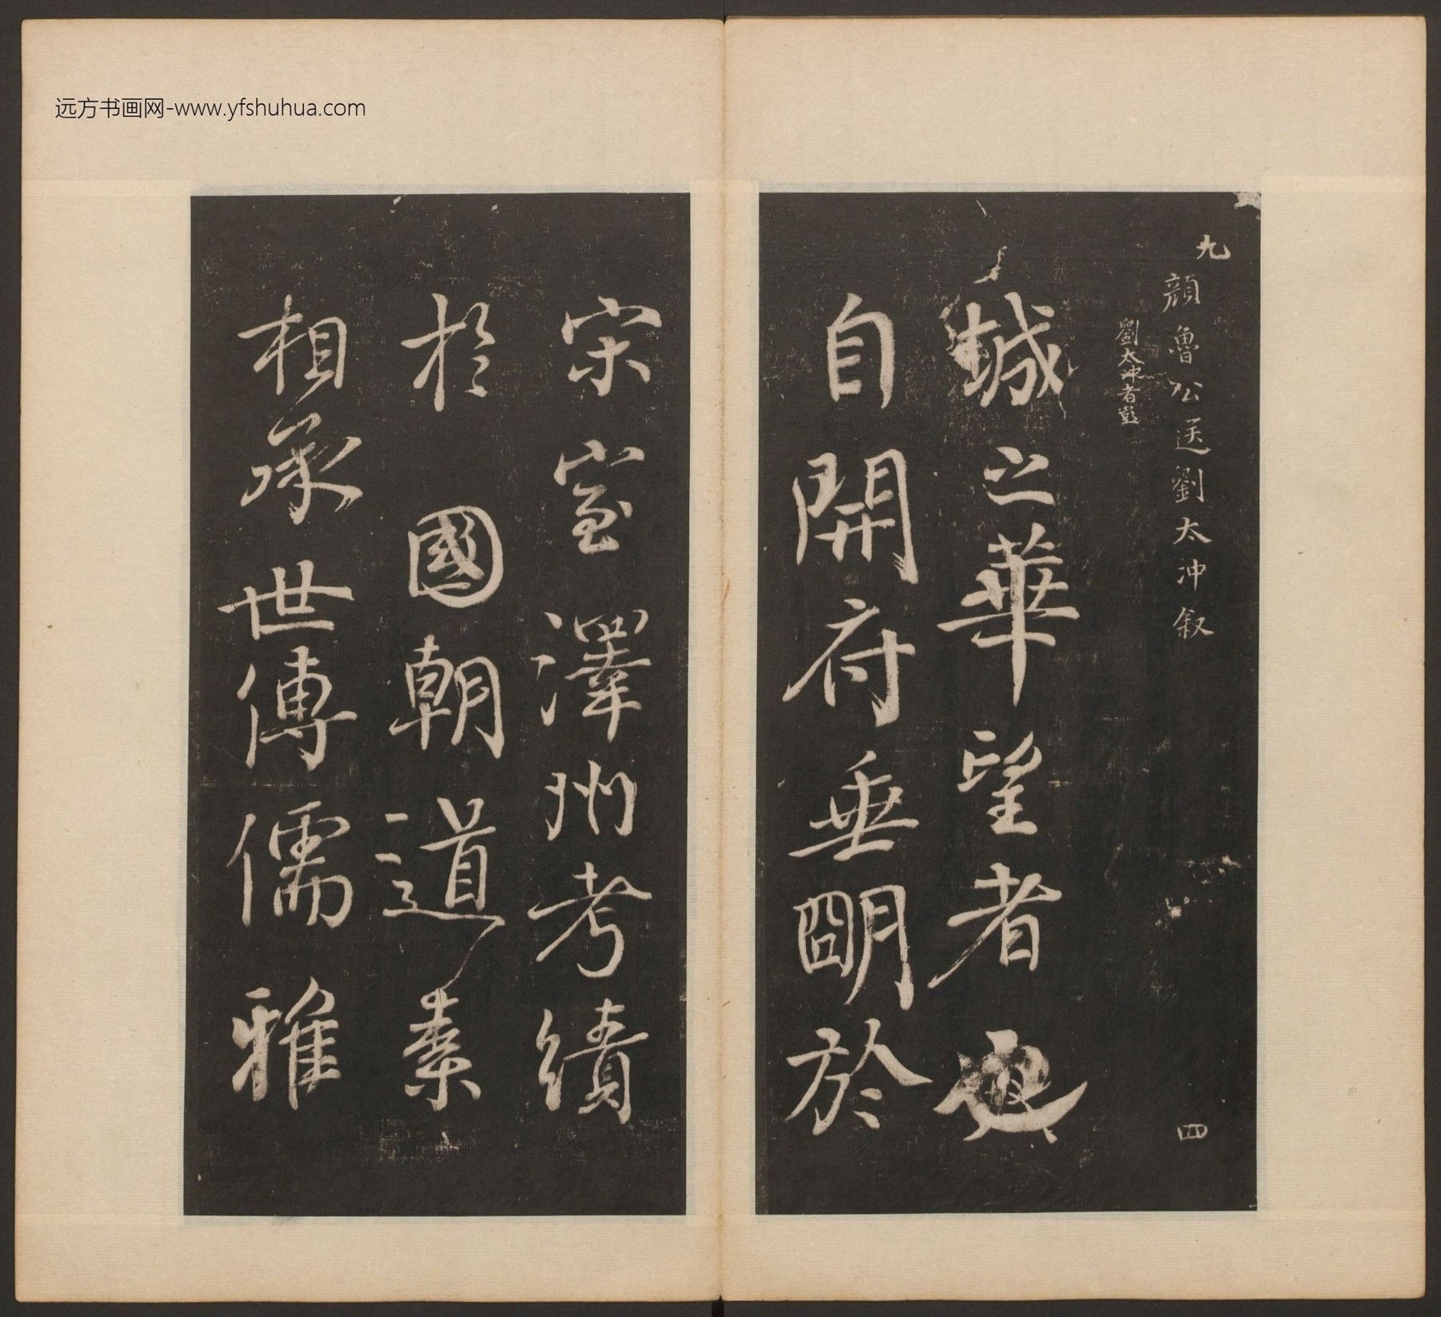 远方书画网-www.yfshuhua.com
九
顔魯公送劉太冲叙
四
劉太冲者彭
城之華望者也
自開府垂朙於
宋室澤州考績
於國朝道素
相承世傳儒雅